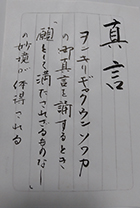 真言
ヲンキリギャクウンソワカ
の御真言を誦するとき
「願として満たされざるものなし」
の妙境が体得される